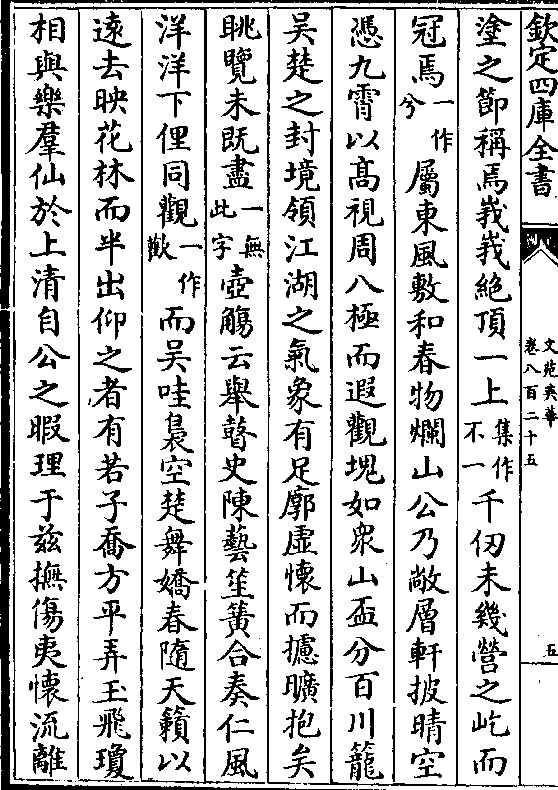 欽定四庫全書
文苑英華
卷八百二十五
五
塗之節稱焉峩峩絶頂一上集作不一千仞未幾營之屹而
冠焉一作兮屬東風敷和春物爛山公乃敞層軒披晴空
憑九霄以高視周八極而遐觀塊如衆山盃分百川籠
吴楚之封境領江湖之氣象有足廓虛懷而攄曠抱矣
眺覽未既盡一無此字壺觴云舉瞽史陳藝笙簧合奏仁風
洋洋下俚同觀一作歡而吴哇裊空楚舞嬌春隨天籟以
遠去映花林而半出仰之者有若子喬方平弄玉飛瓊
相與樂羣仙於上清自公之暇理于兹撫傷夷懷流離